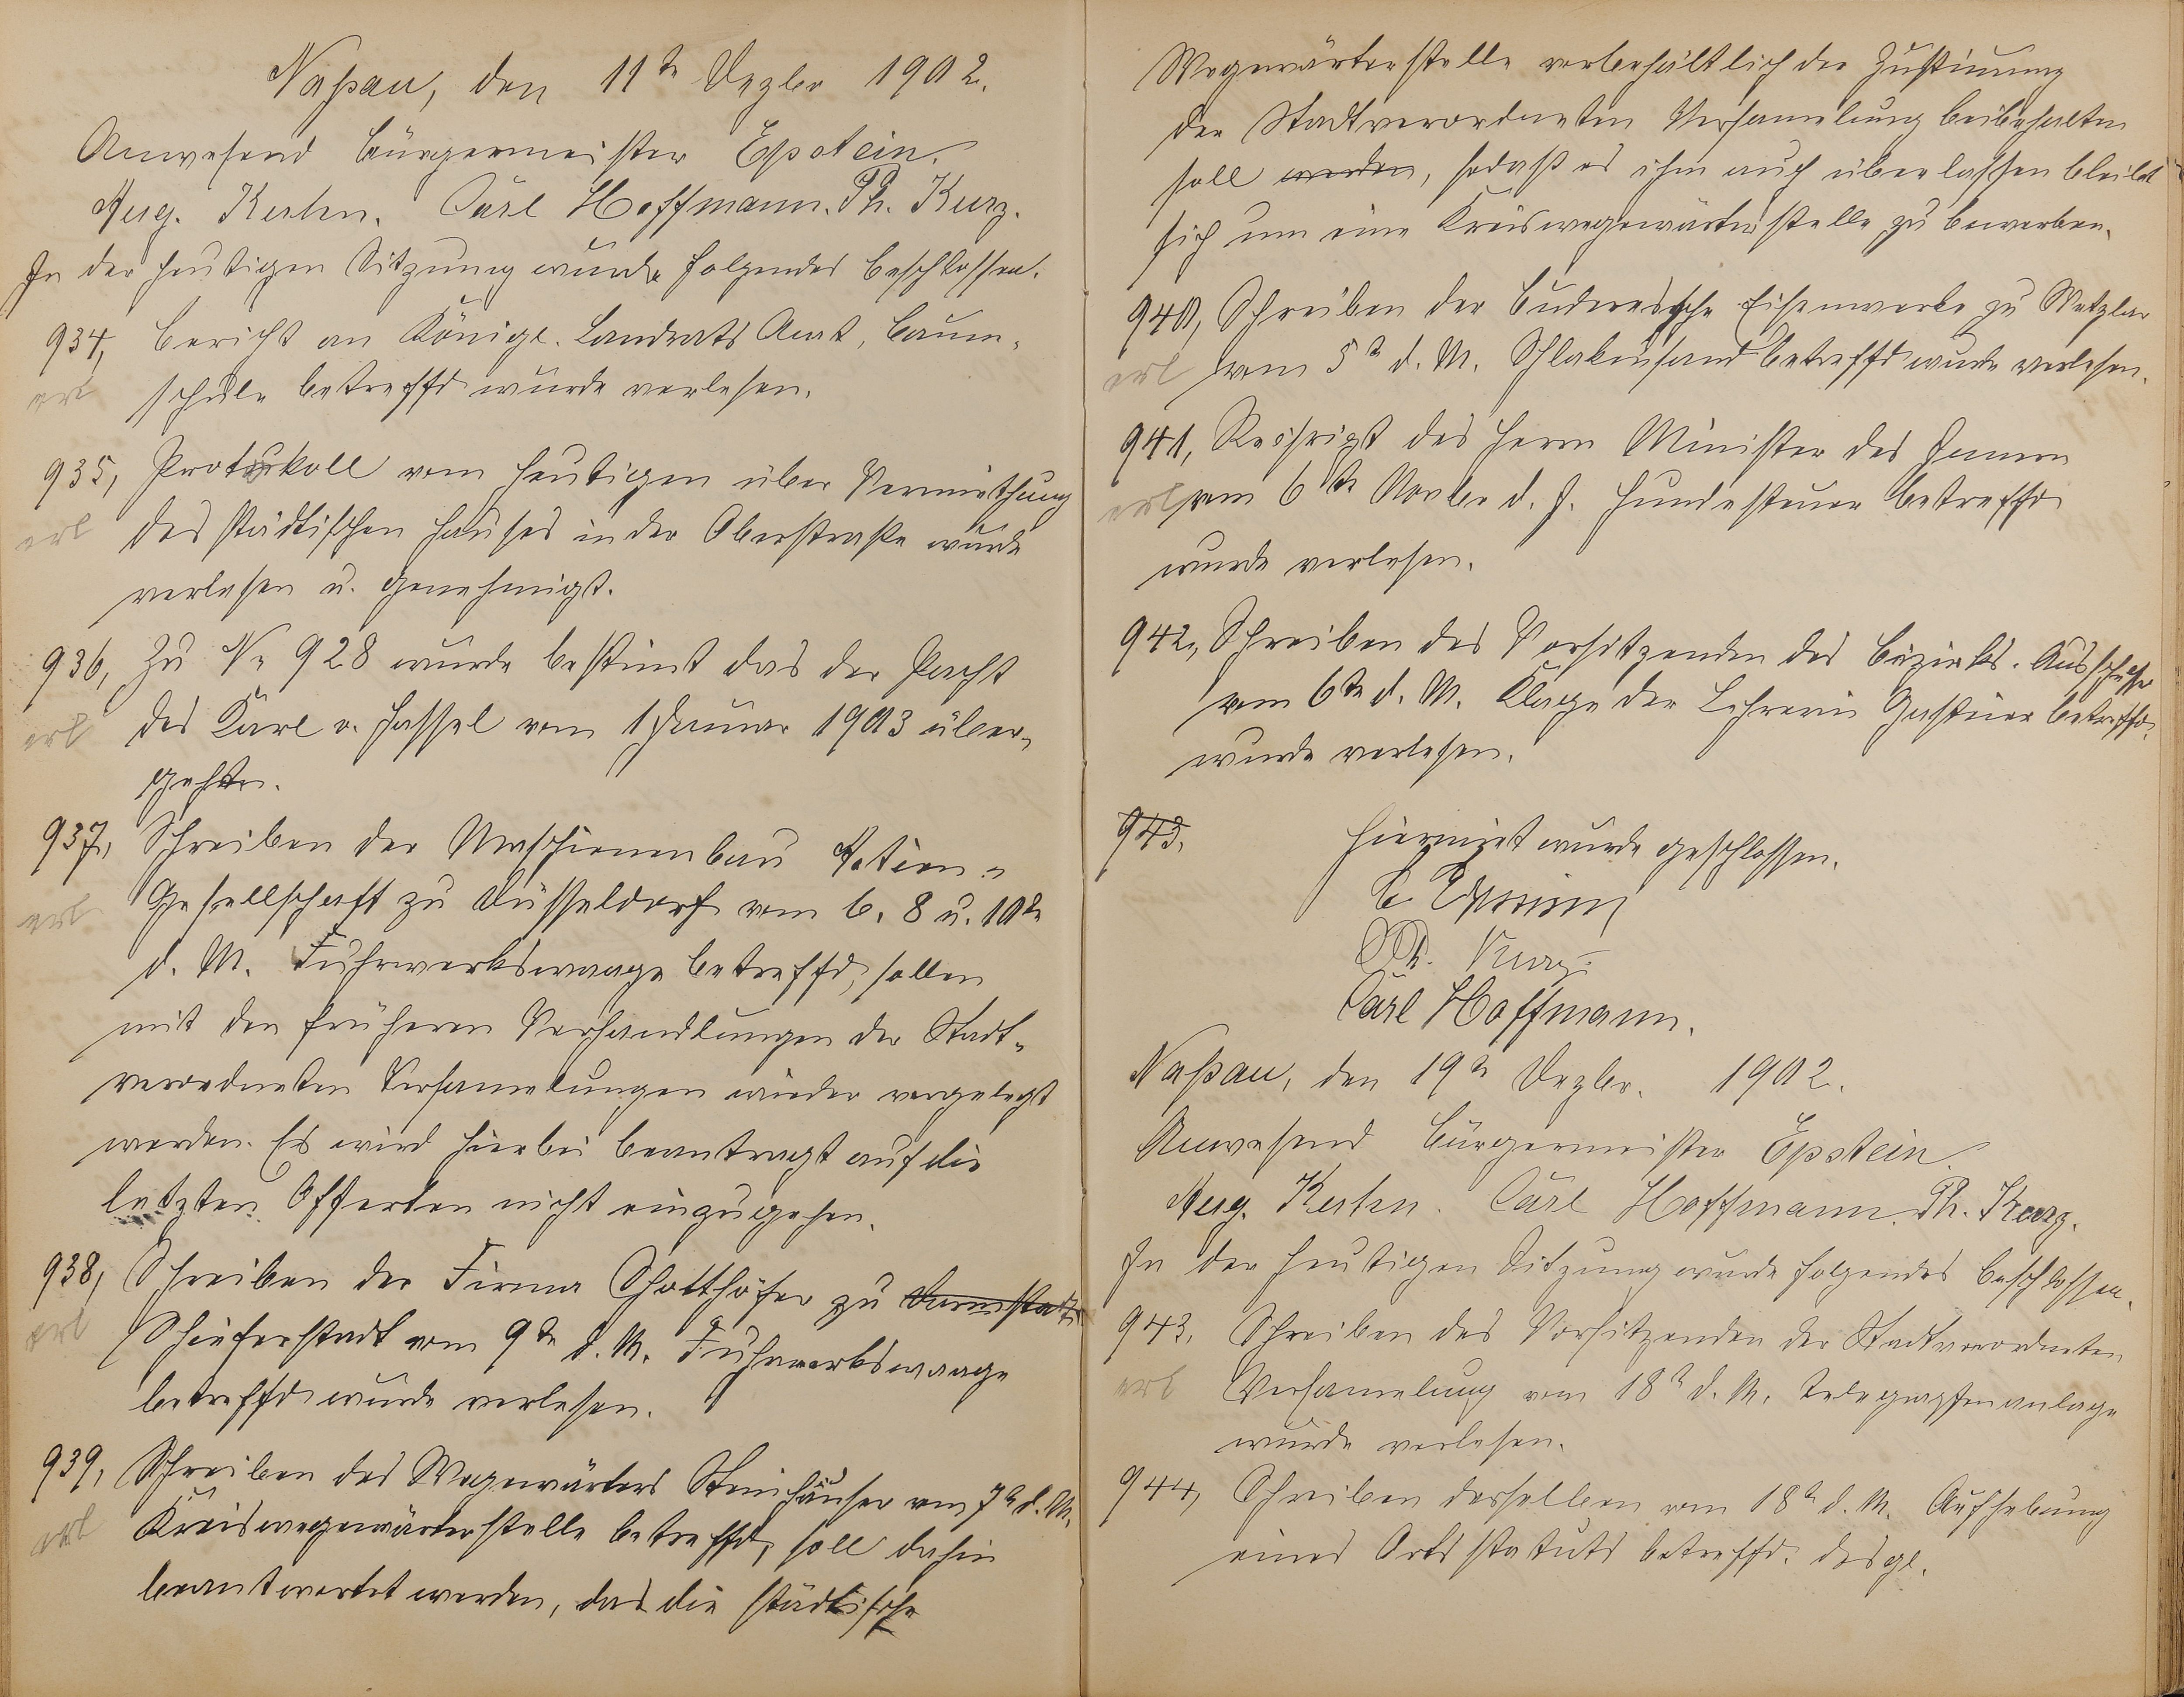 Naßau, den 11te Dezbr 1902.
Anwesend Bürgermeister Epstein.
Aug. Kuhn. Carl Hoffmann. Ph. Kurz.
In der heutigen Sitzung wurde folgendes beschlossen.
934, Bericht an Königl. Landrats Amt, Baum-
erl schule betreffd wurde verlesen.
935, Protokoll vom heutigen über Vermiethung
erl des städtischen Hauses in der Oberstraße wurde
verlesen u. genehmigt.
936, Zu No 928 wurde bestimt das der Pacht
erl des Karl v. Hassel vom 1 Januar 1903 über-
gehen.
937, Schreiben der Maschienenbau Actien-
erl Gesellschaft zu Düsseldorf vom 6. 8 u. 10te
d. M. Fuhrwerkswaage betreffd, sollen
mit den früheren Verhandlungen der Stadt-
verordneten Versamelungen wieder vorgelegt
werden. Es wird hierbei beantragt auf die
letzten Offerten nicht einzugehen.
938, Schreiben der Firma Schotthöfer zu Darmstadt
erl Schieferstadt vom 9te d. M. Fuhrwerkswaage
betreffd wurde verlesen.
939, Schreiben des Wegewärters Steinhäuser vom 7te d. M.
erl Kreiswegewärterstelle betreffd, soll dahin
beantwortet werden, das die städtische
Wegewärterstelle vorbehältlich der Zustimung
der Stadtverordneten Versamelung beibehalten
soll werden, sodaß es ihm auch überlassen bleibt
sich um eine Kreiswegewärterstelle zu bewerben.
940, Schreiben der Buderussche Eisenwerke zu Wetzlar
erl vom 5te d. M. Schlakensand betreffd wurde verlesen.
941, Reskript des Herrn Minister des Innern
erl vom 6te Novbr d. J. Hundesteuer betreffd
wurde verlesen.
942, Schreiben des Vorsitzenden des Bezirks. Ausschusses
vom 6te d. M. Klage der Lehrerin betreffd.
wurde verlesen.
943. Hiermit wurde geschlossen.
E Epstein
Ph. Kurz.
Carl Hoffmann.
Naßau, den 19te Dezbr. 1902.
Anwesend Bürgermeister Epstein.
Aug. Kuhn. Carl Hoffmann. Ph. Kurz.
In der heutigen Sitzung wurde folgendes beschlossen.
943. Schreiben des Vorsitzenden der Stadtverordneten
erl Versamelung vom 18te d. M. Telegrafenanlage
wurde verlesen.
944, Schreiben desselben vom 18te d. M. Aufhebung
eines Ortsstatuts betreffd. desgl.